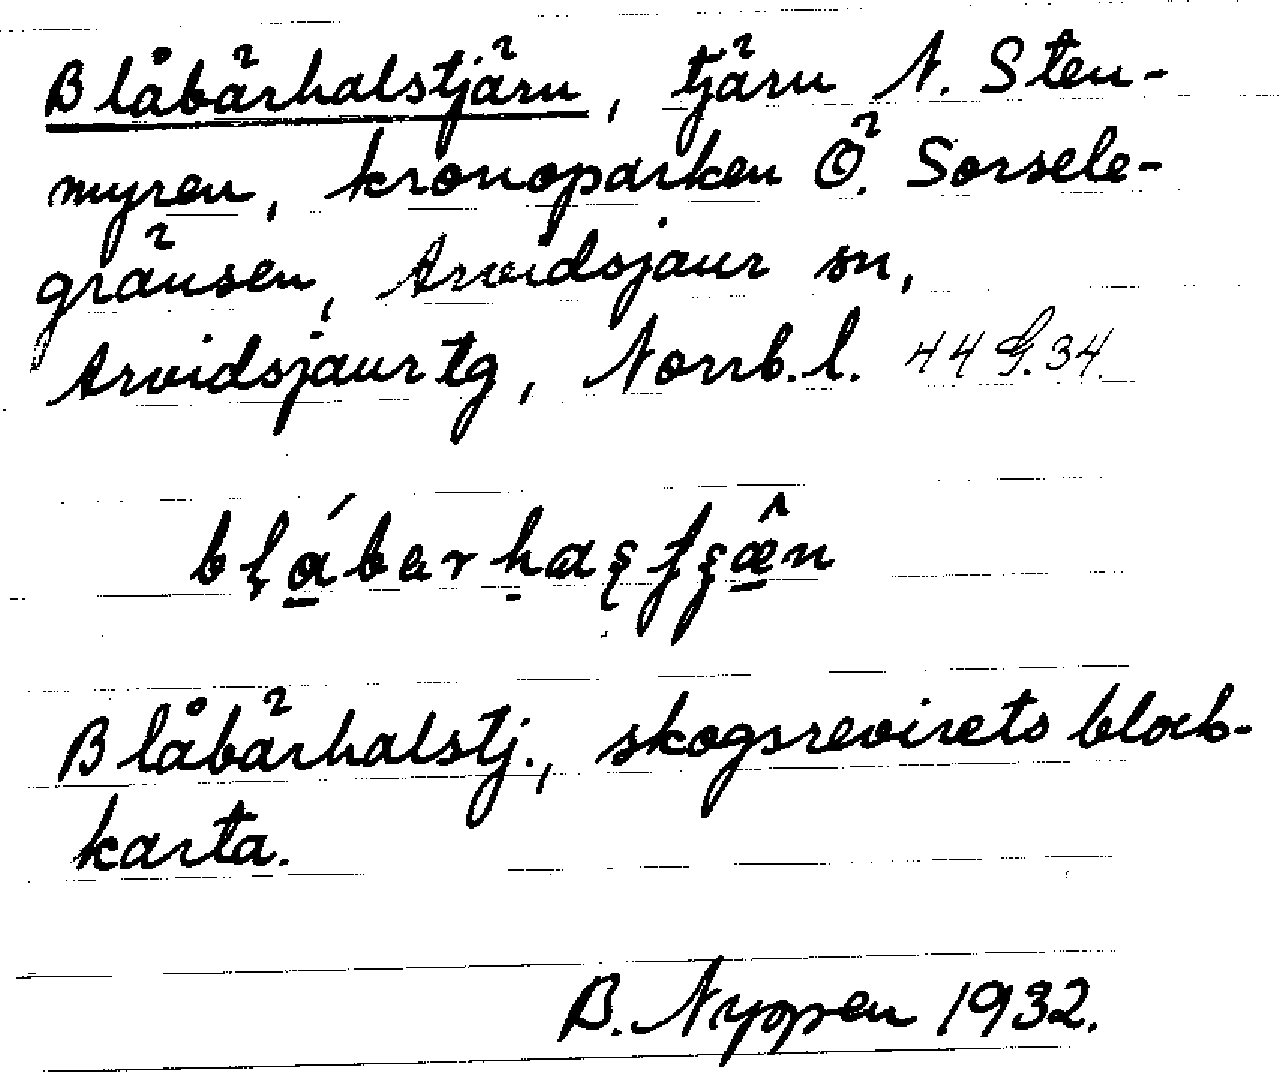 Blåbärhalstjärn, tjärn N. Sten-
myren, kronoparken Ö. Sorsele-
gränsen, Arvidsjaur sn,
Arvidsjaur tg, Norrb.l. 44 G. 34.
Blåbärhalstj., skogsrevirets block-
karta.
B. Nyppen 1932.